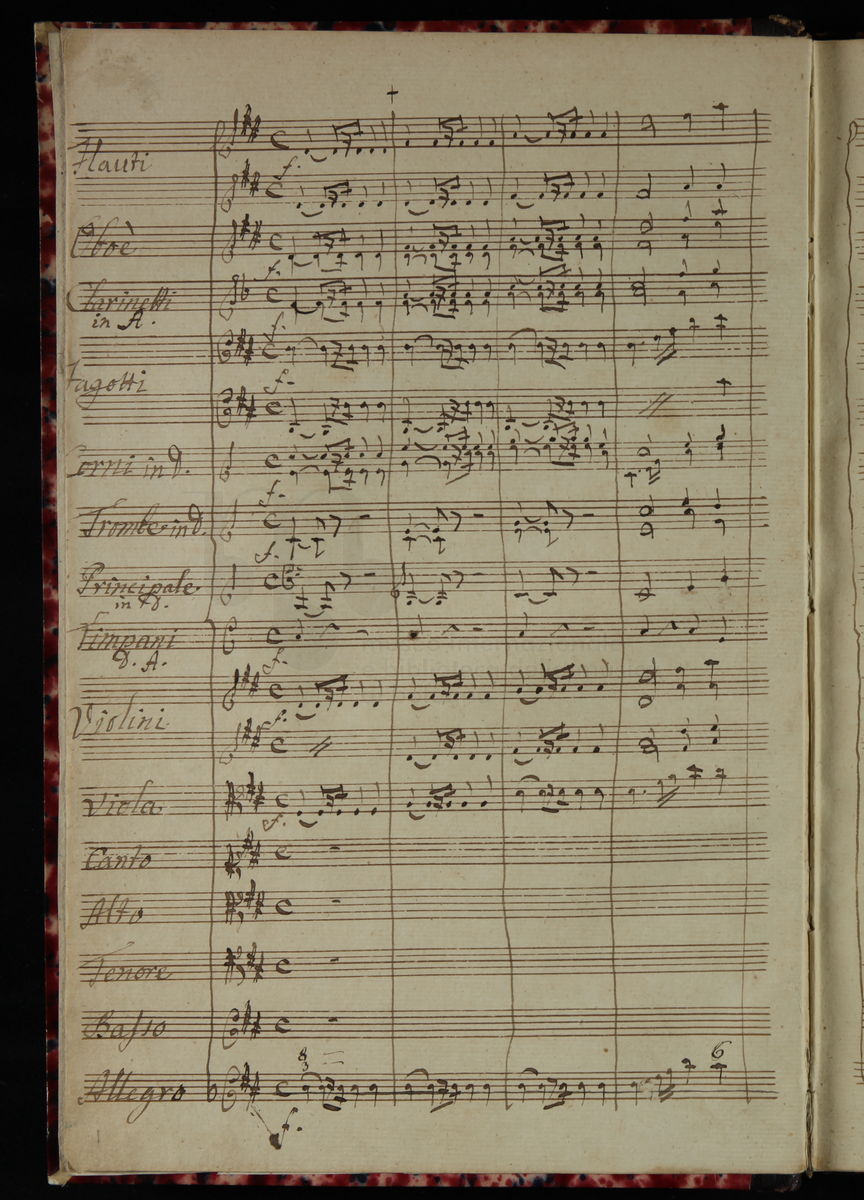 Flauti
f.
Oboè
f.
Clarinetti
in A.
f.
Fagotti
f.
Corni in D.
f.
Trombe in D.
f.
Principale
in D.
Timpani
D. A.
f.
Violini
f.
Viola
f.
Canto
Alto
Tenore
Basso
8
3
6
Allegro
f.